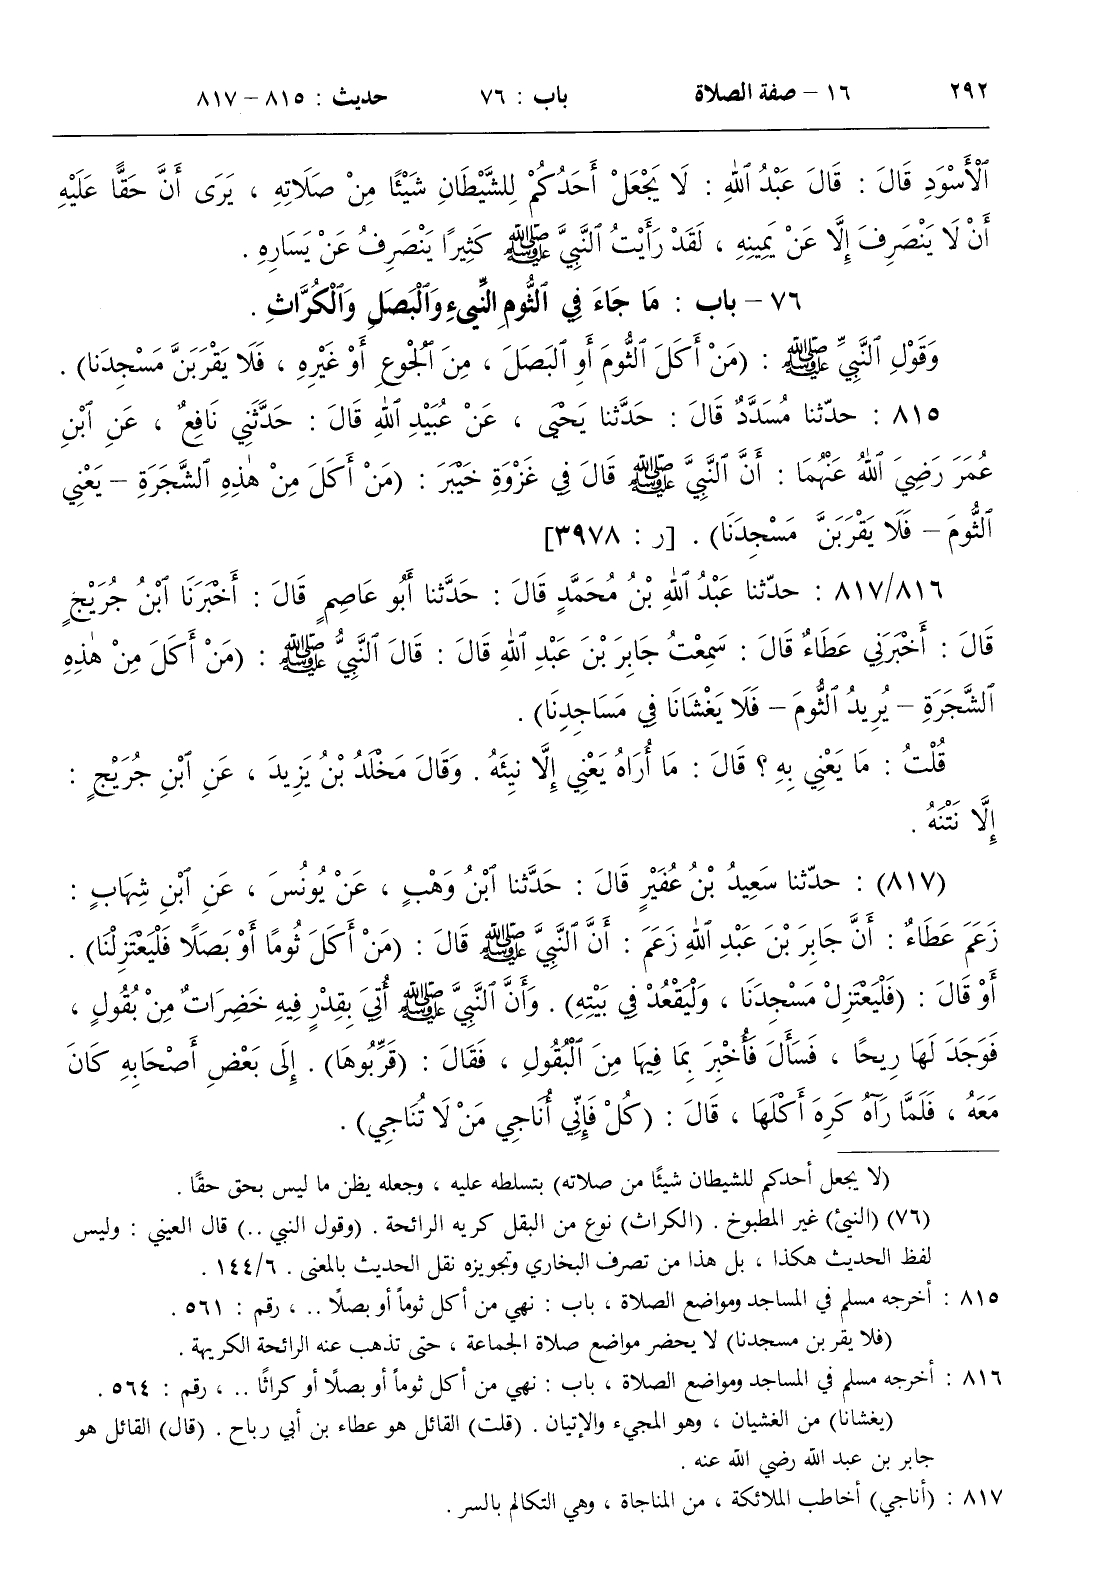 ٢٩٢ ١٦ - صفة الصلاة باب : ٧٦ حديث : ٨١٥ - ٨١٧
ٱلْأَسْوَدِ قَالَ : قَالَ عَبْدُ ٱللهِ : لَا يَجْعَلْ أَحَدُكُمْ لِلشَّيْطَانِ شَيْئًا مِنْ صَلَاتِهِ ، يَرَى أَنَّ حَقًّا عَلَيْهِ
أَنْ لَا يَنْصَرِفَ إِلَّا عَنْ يَمِينِهِ ، لَقَدْ رَأَيْتُ ٱلنَّبِيَّ ﷺ كَثِيرًا يَنْصَرِفُ عَنْ يَسَارِهِ .
٧٦ - باب : مَا جَاءَ فِي ٱلثُّومِ ٱلنِّيءِ وَٱلْبَصَلِ وَٱلْكُرَّاثِ .
وَقَوْلِ ٱلنَّبِيِّ ﷺ : (مَنْ أَكَلَ ٱلثُّومَ أَوِ ٱلْبَصَلَ ، مِنَ ٱلْجُوعِ أَوْ غَيْرِهِ ، فَلَا يَقْرَبَنَّ مَسْجِدَنَا) .
٨١٥ : حدّثنا مُسَدَّدٌ قَالَ : حَدَّثَنا يَحْيَى ، عَنْ عُبَيْدِ ٱللهِ قَالَ : حَدَّثَنِي نَافِعٌ ، عَنِ ٱبْنِ
عُمَرَ رَضِيَ ٱللهُ عَنْهُمَا : أَنَّ ٱلنَّبِيَّ ﷺ قَالَ فِي غَزْوَةِ خَيْبَرَ : (مَنْ أَكَلَ مِنْ هٰذِهِ ٱلشَّجَرَةِ - يَعْنِي
ٱلثُّومَ - فَلَا يَقْرَبَنَّ مَسْجِدَنَا) . [ر : ٣٩٧٨]
٨١٧/٨١٦ : حدّثنا عَبْدُ ٱللهِ بْنُ مُحَمَّدٍ قَالَ : حَدَّثَنا أَبُو عَاصِمٍ قَالَ : أَخْبَرَنَا ٱبْنُ جُرَيْجٍ
قَالَ : أَخْبَرَنِي عَطَاءٌ قَالَ : سَمِعْتُ جَابِرَ بْنَ عَبْدِ ٱللهِ قَالَ : قَالَ ٱلنَّبِيُّ ﷺ : (مَنْ أَكَلَ مِنْ هٰذِهِ
ٱلشَّجَرَةِ - يُرِيدُ ٱلثُّومَ - فَلَا يَغْشَانَا فِي مَسَاجِدِنَا) .
قُلْتُ : مَا يَعْنِي بِهِ ؟ قَالَ : مَا أُرَاهُ يَعْنِي إِلَّا نِيئَهُ . وَقَالَ مَخْلَدُ بْنُ يَزِيدَ ، عَنِ ٱبْنِ جُرَيْجٍ :
إِلَّا نَتْنَهُ .
(٨١٧) : حدّثنا سَعِيدُ بْنُ عُفَيْرٍ قَالَ : حَدَّثَنا ٱبْنُ وَهْبٍ ، عَنْ يُونُسَ ، عَنِ ٱبْنِ شِهَابٍ :
زَعَمَ عَطَاءٌ : أَنَّ جَابِرَ بْنَ عَبْدِ ٱللهِ زَعَمَ : أَنَّ ٱلنَّبِيَّ ﷺ قَالَ : (مَنْ أَكَلَ ثُومًا أَوْ بَصَلًا فَلْيَعْتَزِلْنَا) .
أَوْ قَالَ : (فَلْيَعْتَزِلْ مَسْجِدَنَا ، وَلْيَقْعُدْ فِي بَيْتِهِ) . وَأَنَّ ٱلنَّبِيَّ ﷺ أُتِيَ بِقِدْرٍ فِيهِ خَضِرَاتٌ مِنْ بُقُولٍ ،
فَوَجَدَ لَهَا رِيحًا ، فَسَأَلَ فَأُخْبِرَ بِمَا فِيهَا مِنَ ٱلْبُقُولِ ، فَقَالَ : (قَرِّبُوهَا) . إِلَى بَعْضِ أَصْحَابِهِ كَانَ
مَعَهُ ، فَلَمَّا رَآهُ كَرِهَ أَكْلَهَا ، قَالَ : (كُلْ فَإِنِّي أُنَاجِي مَنْ لَا تُنَاجِي) .
(لا يجعل أحدكم للشيطان شيئًا من صلاته) بتسلطه عليه ، وجعله يظن ما ليس بحق حقًا .
(٧٦) (النيئ) غير المطبوخ . (الكراث) نوع من البقل كريه الرائحة . (وقول النبي ..) قال العيني : وليس
لفظ الحديث هكذا ، بل هذا من تصرف البخاري وتجويزه نقل الحديث بالمعنى . ١٤٤/٦ .
٨١٥ : أخرجه مسلم في المساجد ومواضع الصلاة ، باب : نهي من أكل ثوماً أو بصلًا .. ، رقم : ٥٦١ .
(فلا يقر بن مسجدنا) لا يحضر مواضع صلاة الجماعة ، حتى تذهب عنه الرائحة الكريهة .
٨١٦ : أخرجه مسلم في المساجد ومواضع الصلاة ، باب : نهي من أكل ثوماً أو بصلًا أو كراثًا .. ، رقم : ٥٦٤ .
(يغشانا) من الغشيان ، وهو المجيء والإتيان . (قلت) القائل هو عطاء بن أبي رباح . (قال) القائل هو
جابر بن عبد الله رضي الله عنه .
٨١٧ : (أناجي) أخاطب الملائكة ، من المناجاة ، وهي التكالم بالسر .